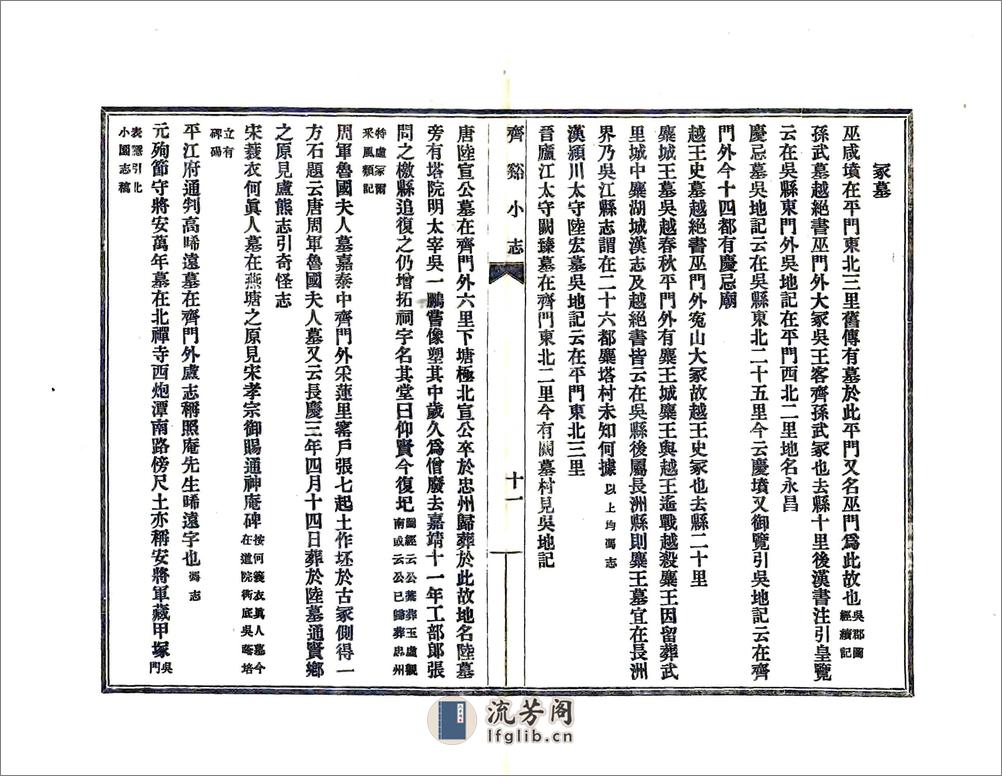 冢墓
巫咸墳在平門東北三里舊傳有墓於此平門又名巫門爲此故也吳郡圖經續記
孫武墓越絕書巫門外大冢吳王客齊孫武冢也去縣十里後漢書注引皇覽
云在吳縣東門外吳地記在平門西北二里地名永昌
慶忌墓吳地記云在吳縣東北二十五里今云慶墳又御覽引吳地記云在齊
門外今十四都有慶忌廟
越王史墓越絕書巫門外寃山大冢故越王史冢也去縣二十里
麋城王墓吳越春秋平門外有麋王城麋王與越王遙戰越殺麋王因留葬武
里城中麋湖城漢志及越絕書皆云在吳縣後屬長洲縣則麋王墓宜在長洲
界乃吳江縣志謂在二十六都麋塔村未知何據以上均馮志
漢潁川太守陸宏墓吳地記云在平門東北三里
晉廬江太守闞臻墓在齊門東北二里今有闞墓村見吳地記
齊谿小志
十一
唐陸宣公墓在齊門外六里下塘極北宣公卒於忠州歸葬於此故地名陸墓
旁有塔院明太宰吳一鵬嘗像塑其中歲久爲僧廢去嘉靖十一年工部郎張
問之檄縣追復之仍增拓祠宇名其堂曰仰賢今復圮圖經云公藁葬玉虛觀南或云公已歸葬忠州
特虛冢爾采風類記
周軍魯國夫人墓嘉泰中齊門外采蓮里窰戶張七起土作坯於古冢側得一
方石題云唐周軍魯國夫人墓又云長慶三年四月十四日葬於陸墓通賢鄉
之原見盧熊志引奇怪志
宋蓑衣何眞人墓在燕塘之原見宋孝宗御賜通神庵碑按何蓑衣眞人墓今在道院衖底吳蔭培
立有碑碣
平江府通判高晞遠墓在齊門外盧志稱照庵先生晞遠字也馮志
元殉節守將安萬年墓在北禪寺西炮潭南路傍尺土亦稱安將軍藏甲塚吳門
表隱引北小園志稿
流芳阁
lfglib.cn